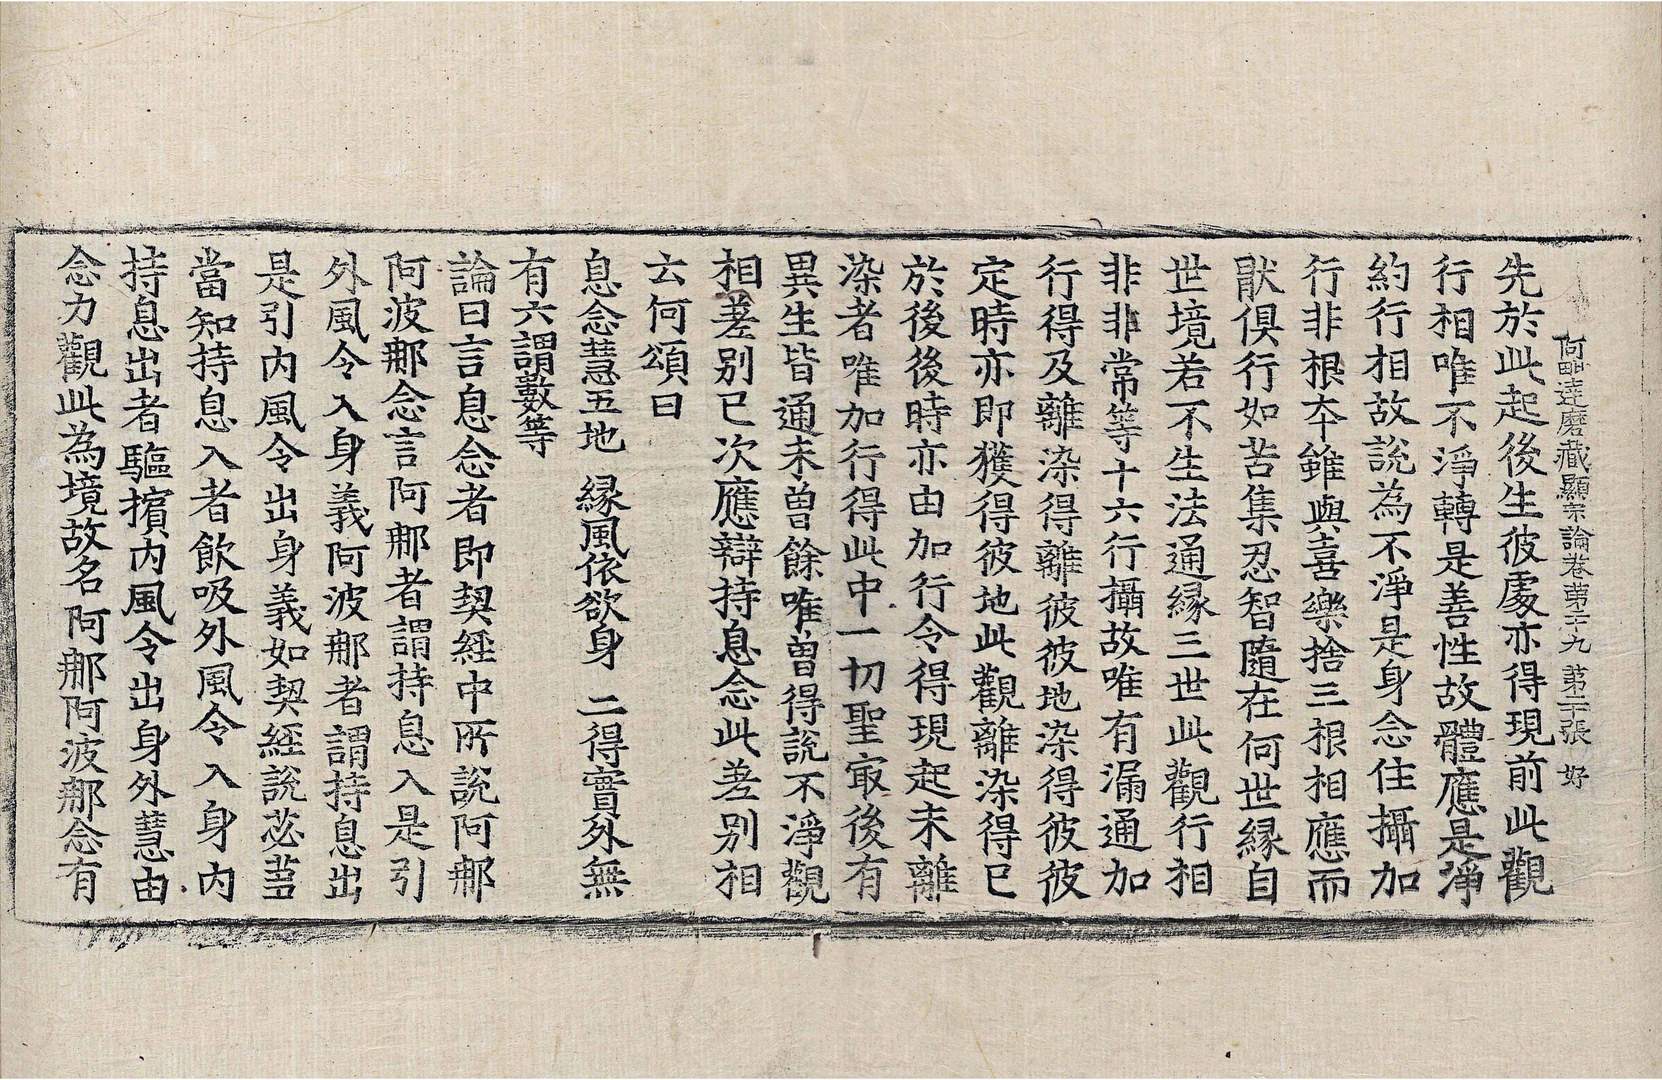 阿毗達磨藏顯宗論卷第二十九 第二十張 好
先於此起後生彼處亦得現前此觀
行相唯不淨轉是善性故體應是淨
約行相故說為不淨是身念住攝加
行非根夲雖與喜樂捨三根相應而
猒俱行如苦集忍智隨在何世緣自
世境若不生法通緣三世此觀行相
非非常等十六行攝故唯有漏通加
行得及離染得離彼彼地染得彼彼
定時亦即獲得彼地此觀離染得已
於後後時亦由加行令得現起未離
染者唯加行得此中一切聖㝡後有
異生皆通未曾餘唯曾得說不淨觀
相差別已次應辯持息念此差別相
云何頌曰
息念慧五地 緣風依欲身 二得實外無
有六謂數等
論曰言息念者即契經中所說阿那
阿波那念言阿那者謂持息入是引
外風令入身義阿波那者謂持息出
是引內風令出身義如契經說苾芻
當知持息入者飲吸外風令入身內
持息出者驅擯內風令出身外慧由
念力觀此為境故名阿那阿波那念有